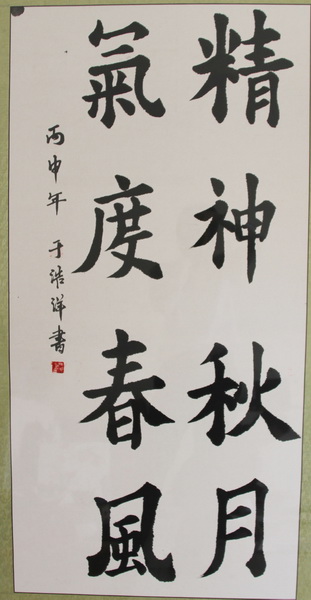 精神秋月
氣度春風
丙申年 于浩洋書